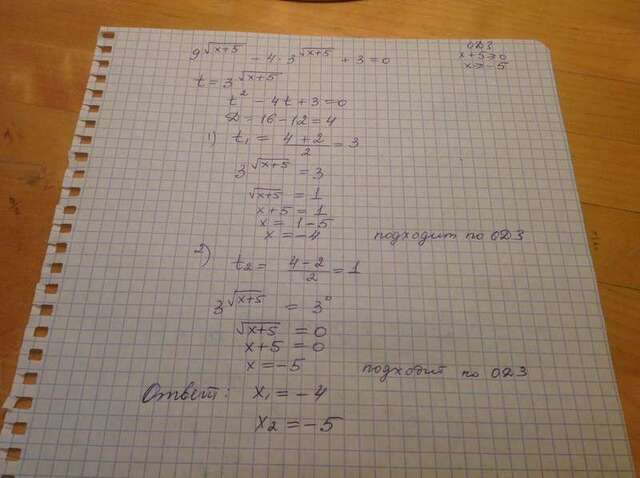 9^√(x+5) - 4·3^√(x+5) + 3 = 0
ОДЗ
x+5≥0
x≥-5
t = 3^√(x+5)
t² - 4t + 3 = 0
D = 16 - 12 = 4
1) t₁ = (4+2)/2 = 3
3^√(x+5) = 3
√(x+5) = 1
x+5 = 1
x = 1-5
x = -4 подходит по ОДЗ
2) t₂ = (4-2)/2 = 1
3^√(x+5) = 3⁰
√(x+5) = 0
x+5 = 0
x = -5 подходит по ОДЗ
Ответ: x₁ = -4
x₂ = -5